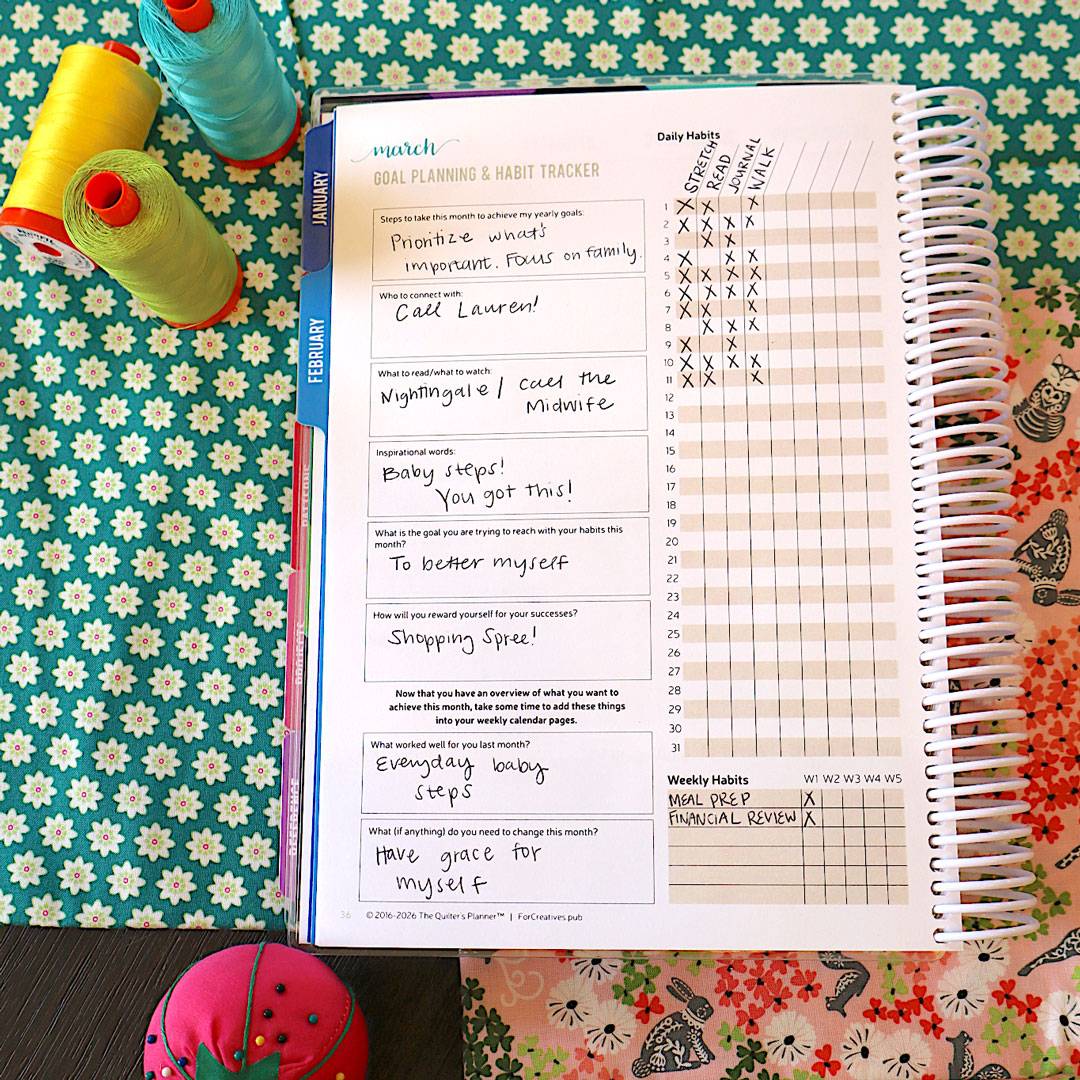 march
GOAL PLANNING & HABIT TRACKER
Steps to take this month to achieve my yearly goals:
Prioritize what's
important. Focus on family.
Who to connect with:
Call Lauren!
What to read/what to watch:
Nightingale / Call the
Midwife
Inspirational words:
Baby steps!
You got this!
What is the goal you are trying to reach with your habits this
month?
To better myself
How will you reward yourself for your successes?
Shopping Spree!
Now that you have an overview of what you want to
achieve this month, take some time to add these things
into your weekly calendar pages.
What worked well for you last month?
Everyday baby
steps
What (if anything) do you need to change this month?
Have grace for
myself
36 © 2016-2026 The Quilter's Planner™ | ForCreatives.pub
Daily Habits
STRETCH
READ
JOURNAL
WALK
1 X X X
2 X X X X
3 X X
4 X X X
5 X X X X
6 X X X X
7 X X X
8 X X X
9 X X
10 X X X X
11 X X X
12
13
14
15
16
17
18
19
20
21
22
23
24
25
26
27
28
29
30
31
Weekly Habits W1 W2 W3 W4 W5
MEAL PREP X
FINANCIAL REVIEW X
JANUARY
FEBRUARY
PROJECTS